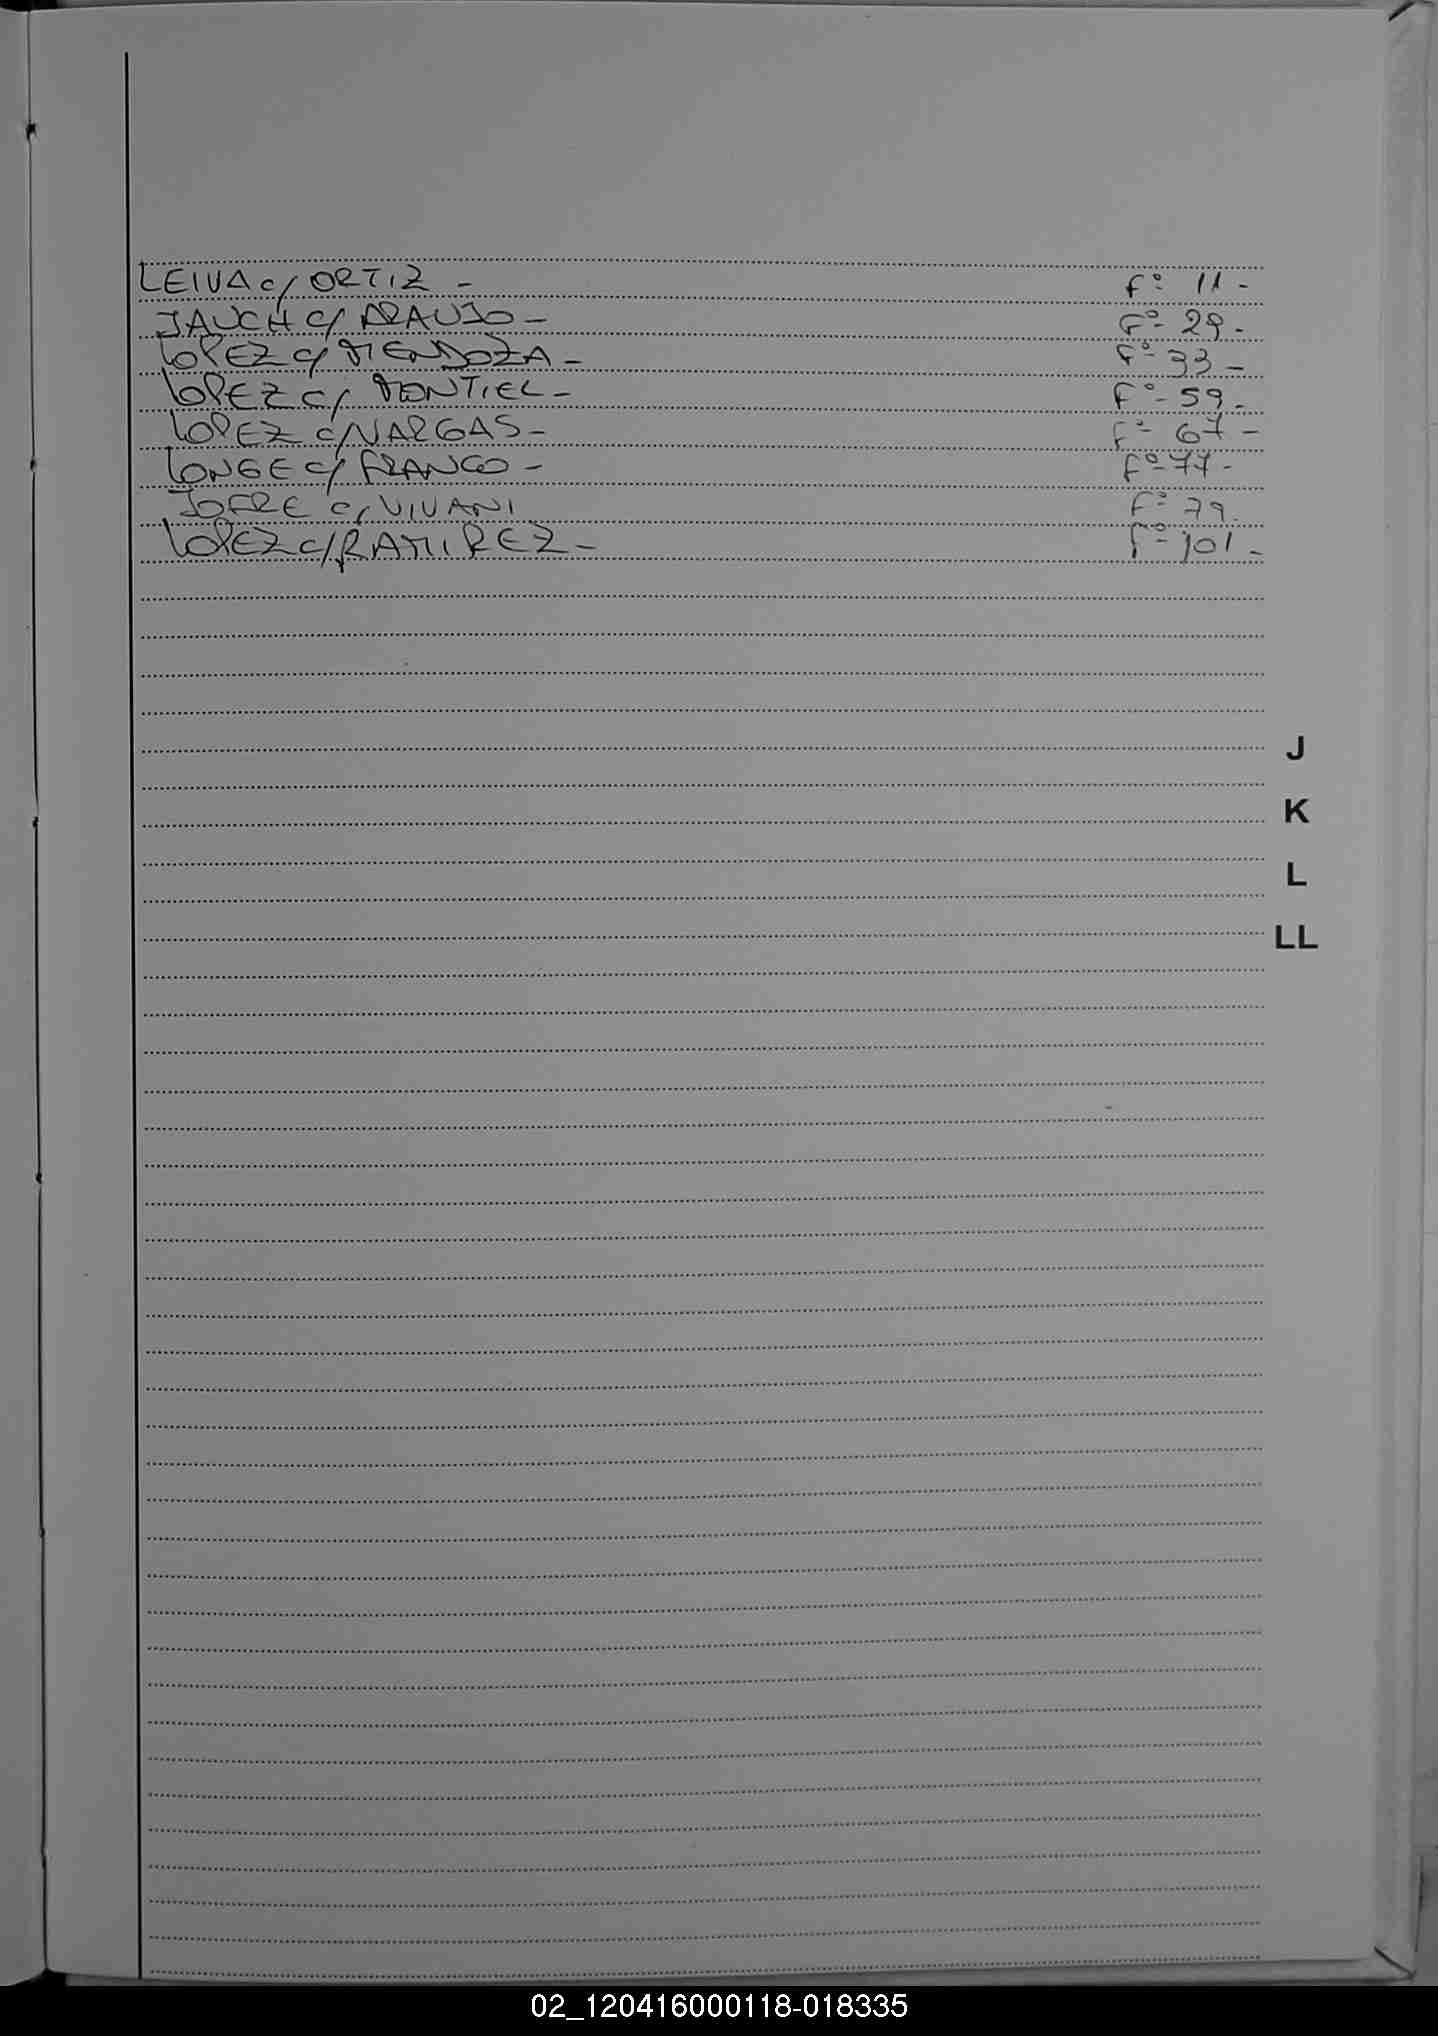 LEIVA c/ ORTIZ - Fº 11 -
JAUCH c/ ARAUJO - Fº 29 -
LOPEZ c/ MENDOZA - Fº 33 -
LOPEZ c/ MONTIEL - Fº 59 -
LOPEZ c/ VARGAS - Fº 67 -
LONGE c/ FRANCO - Fº 77 -
JOFRE c/ VIVANI Fº 79.
LOPEZ c/ RAMIREZ - Fº 101 -
J
K
L
LL
02_120416000118-018335